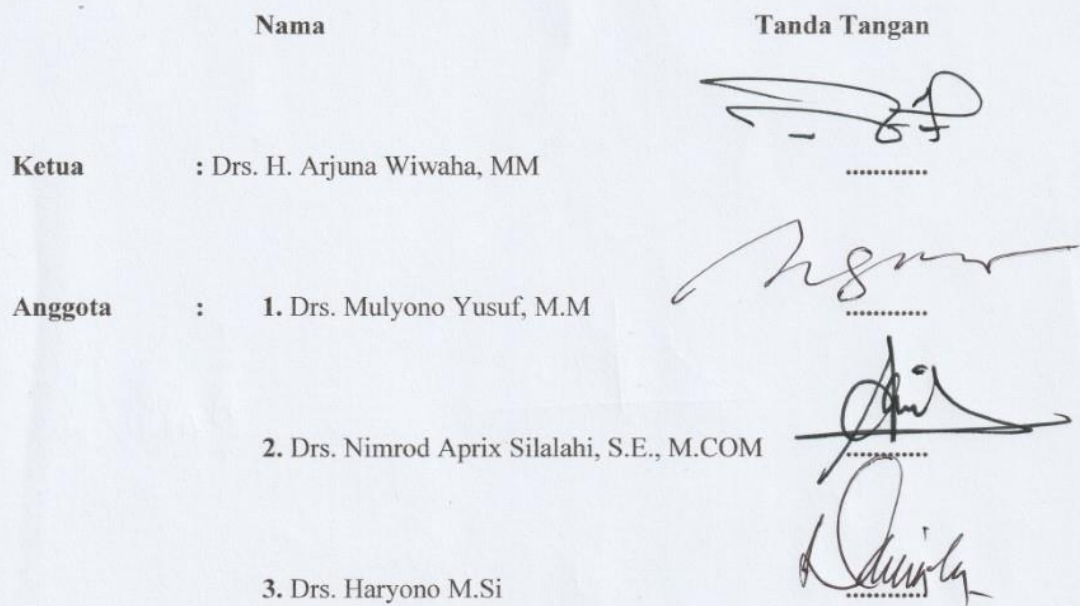 Nama Tanda Tangan
Ketua : Drs. H. Arjuna Wiwaha, MM ............
Anggota : 1. Drs. Mulyono Yusuf, M.M ............
2. Drs. Nimrod Aprix Silalahi, S.E., M.COM ............
3. Drs. Haryono M.Si ............